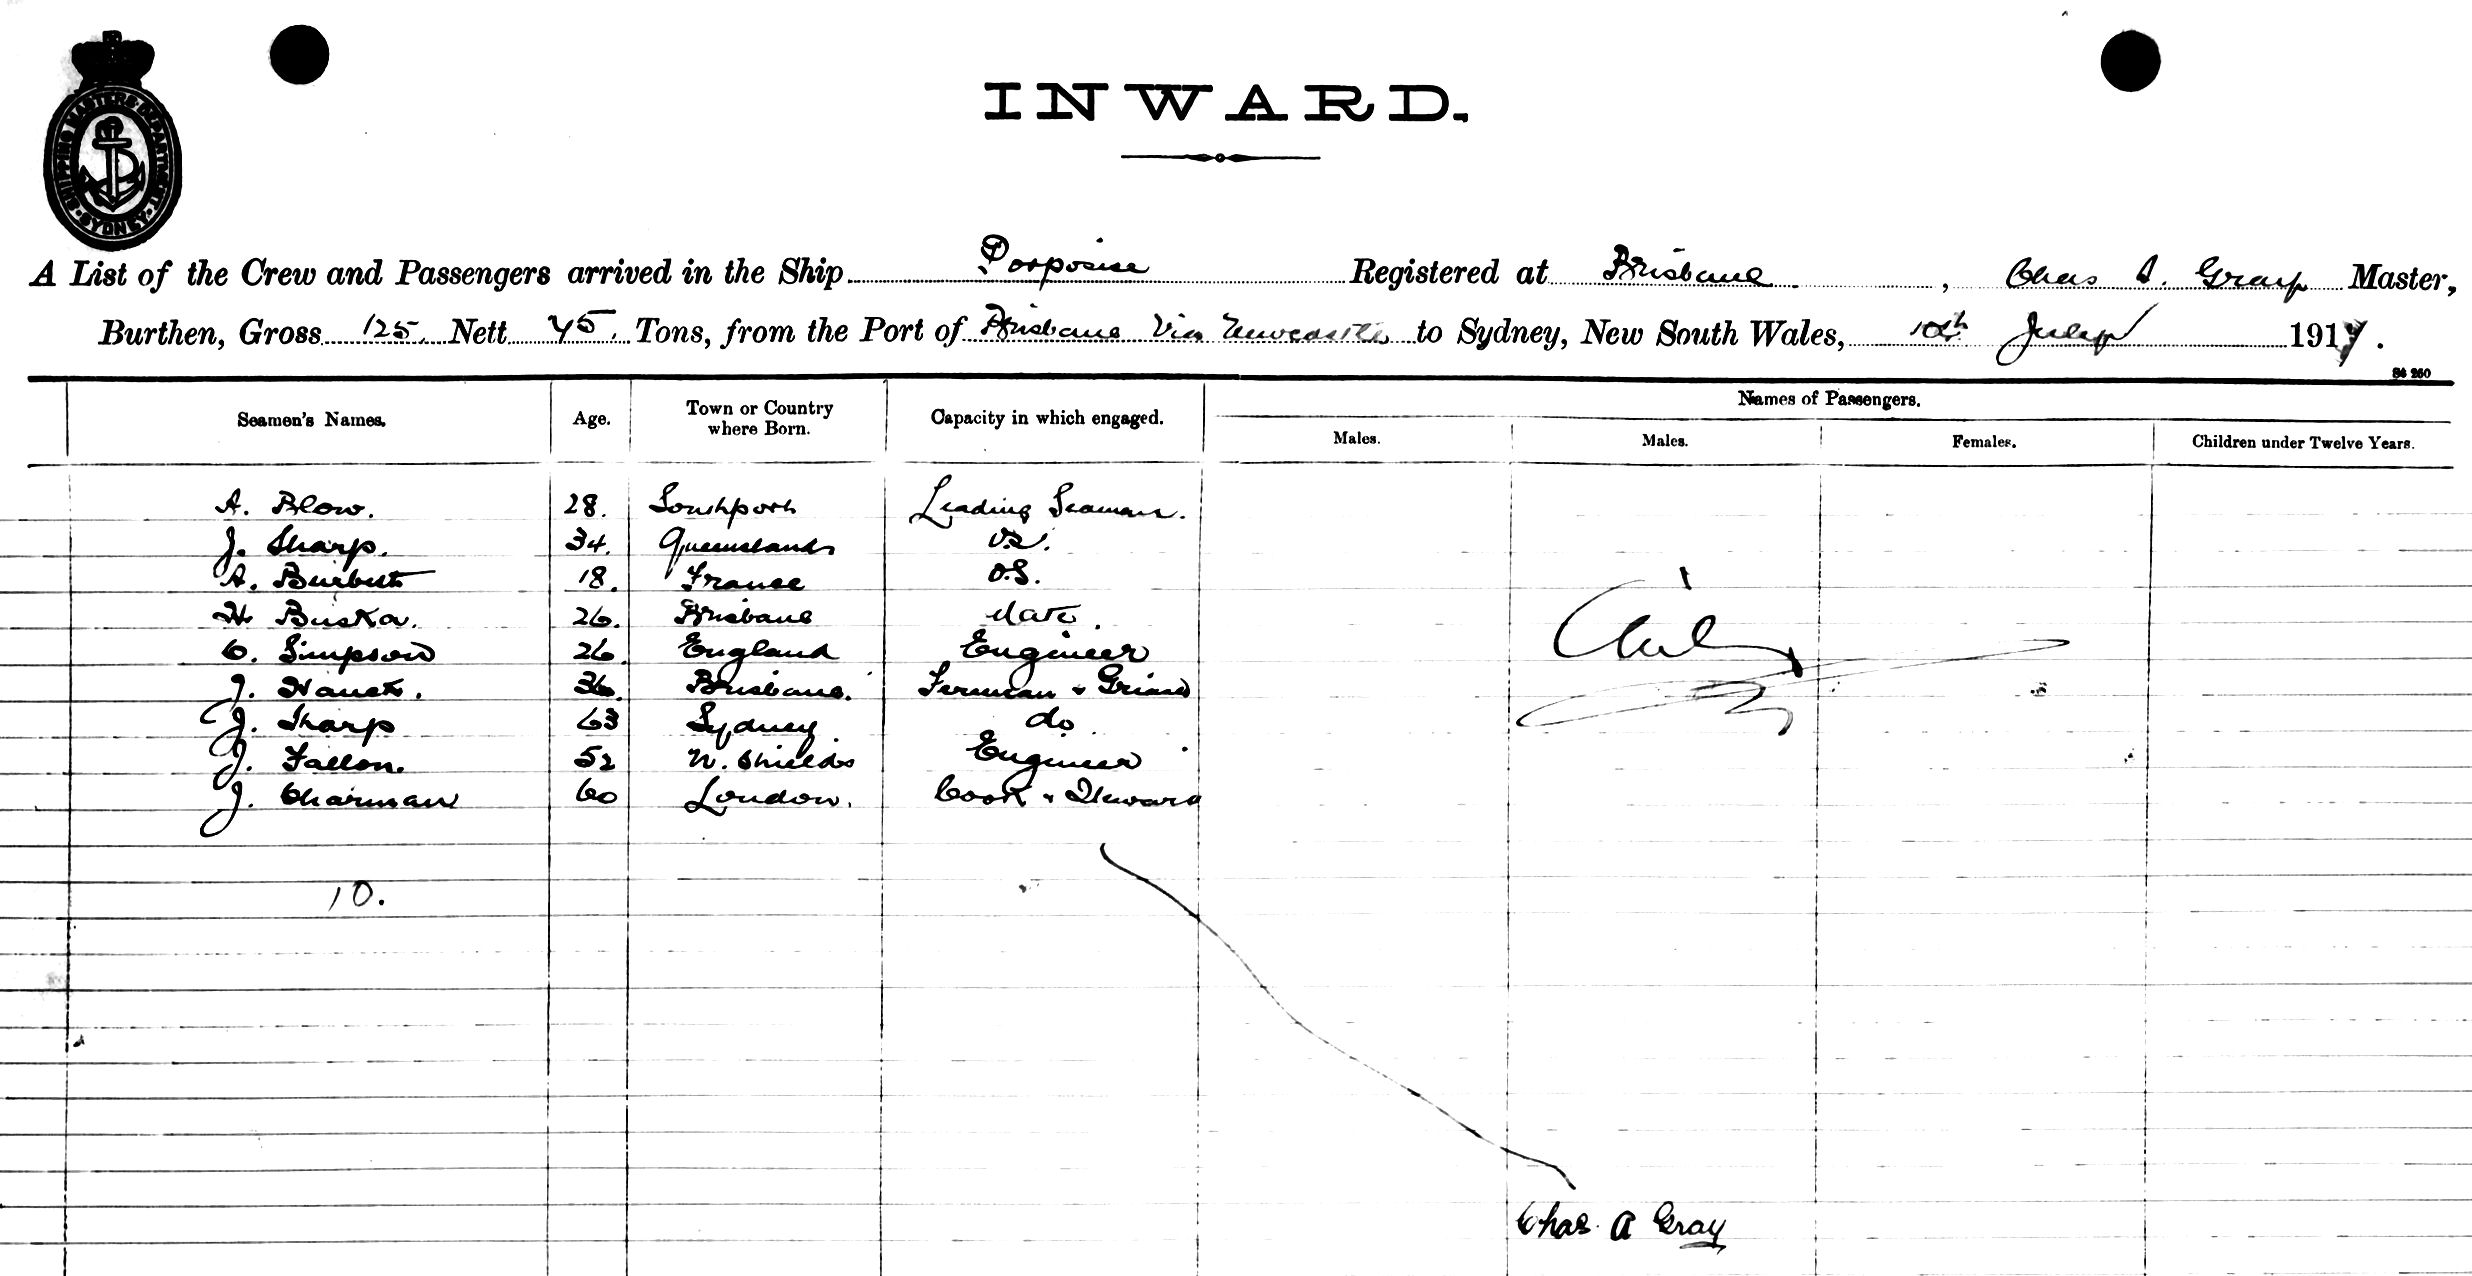 SHIPPING MASTERS DEPARTMENT SYDNEY
INWARD.
A List of the Crew and Passengers arrived in the Ship Porpoise Registered at Brisbane, Chas A. Gray Master,
Burthen, Gross 125. Nett 45. Tons, from the Port of Brisbane Via Newcastle to Sydney, New South Wales, 10th July 1917.
St 260
Seamen's Names. Age. Town or Country where Born. Capacity in which engaged. Names of Passengers.
Males. Males. Females. Children under Twelve Years.
A. Blow. 28. Southport Leading Seaman.
J. Sharp. 34. Queensland
A. 18. France O.S.
H Buska. 26. Brisbane Mate.
C. Simpson 26. England Engineer
J. 36. Brisbane.
J. Sharp 63 Sydney do
J. Fallon. 52 N. Shields Engineer
J. Charman 60 London. Cook & Steward
10.
Chas. A Gray